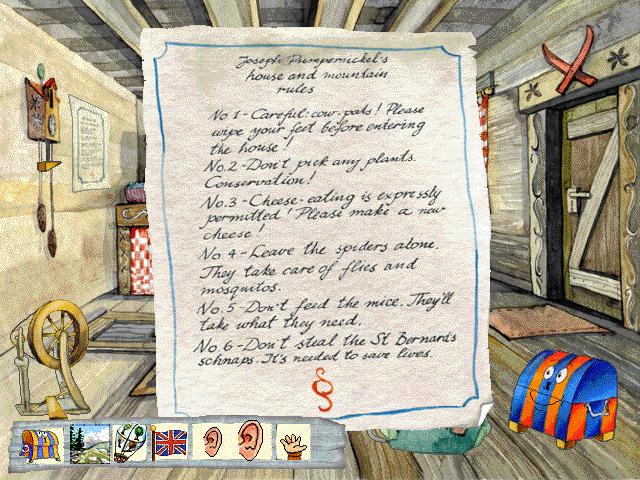 Joseph Pumpernickel's
house and mountain
rules
No 1 - Careful: cow-pats! Please
wipe your feet before entering
the house!
No.2 - Don't pick any plants.
Conservation!
No.3 - Cheese-eating is expressly
permitted! Please make a new
cheese!
No.4 - Leave the spiders alone.
They take care of flies and
mosquitos.
No.5 - Don't feed the mice. They'll
take what they need.
No.6 - Don't steal the St Bernard's
schnaps. It's needed to save lives.
§